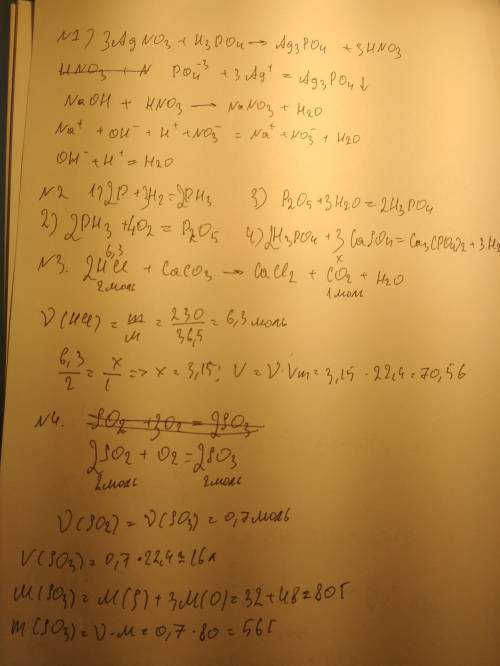 N1) 3AgNO3 + H3PO4 → Ag3PO4 + 3HNO3
HNO3 + N PO4⁻³ + 3Ag⁺ = Ag3PO4↓
NaOH + HNO3 → NaNO3 + H2O
Na⁺ + OH⁻ + H⁺ + NO3⁻ = Na⁺ + NO3⁻ + H2O
OH⁻ + H⁺ = H2O
N2 1) 2P + 3H2 = 2PH3 3) P2O5 + 3H2O = 2H3PO4
2) 2PH3 + 4O2 = P2O5 4) 2H3PO4 + 3CaSO4 = Ca3(PO4)2 + 3H2
6,3 x
N3. 2HCl + CaCO3 → CaCl2 + CO2 + H2O
2моль 1моль
ν(HCl) = m/M = 230/36,5 = 6,3 моль
6,3/2 = x/1 => x = 3,15; V = ν·Vm = 3,15 · 22,4 = 70,56
N4. SO2 + 3O2 = 2SO3
2SO2 + O2 = 2SO3
2моль 2моль
ν(SO2) = ν(SO3) = 0,7 моль
V(SO3) = 0,7 · 22,4 ≈ 16л
M(SO3) = M(S) + 3M(O) = 32 + 48 = 80г
m(SO3) = ν · M = 0,7 · 80 = 56г